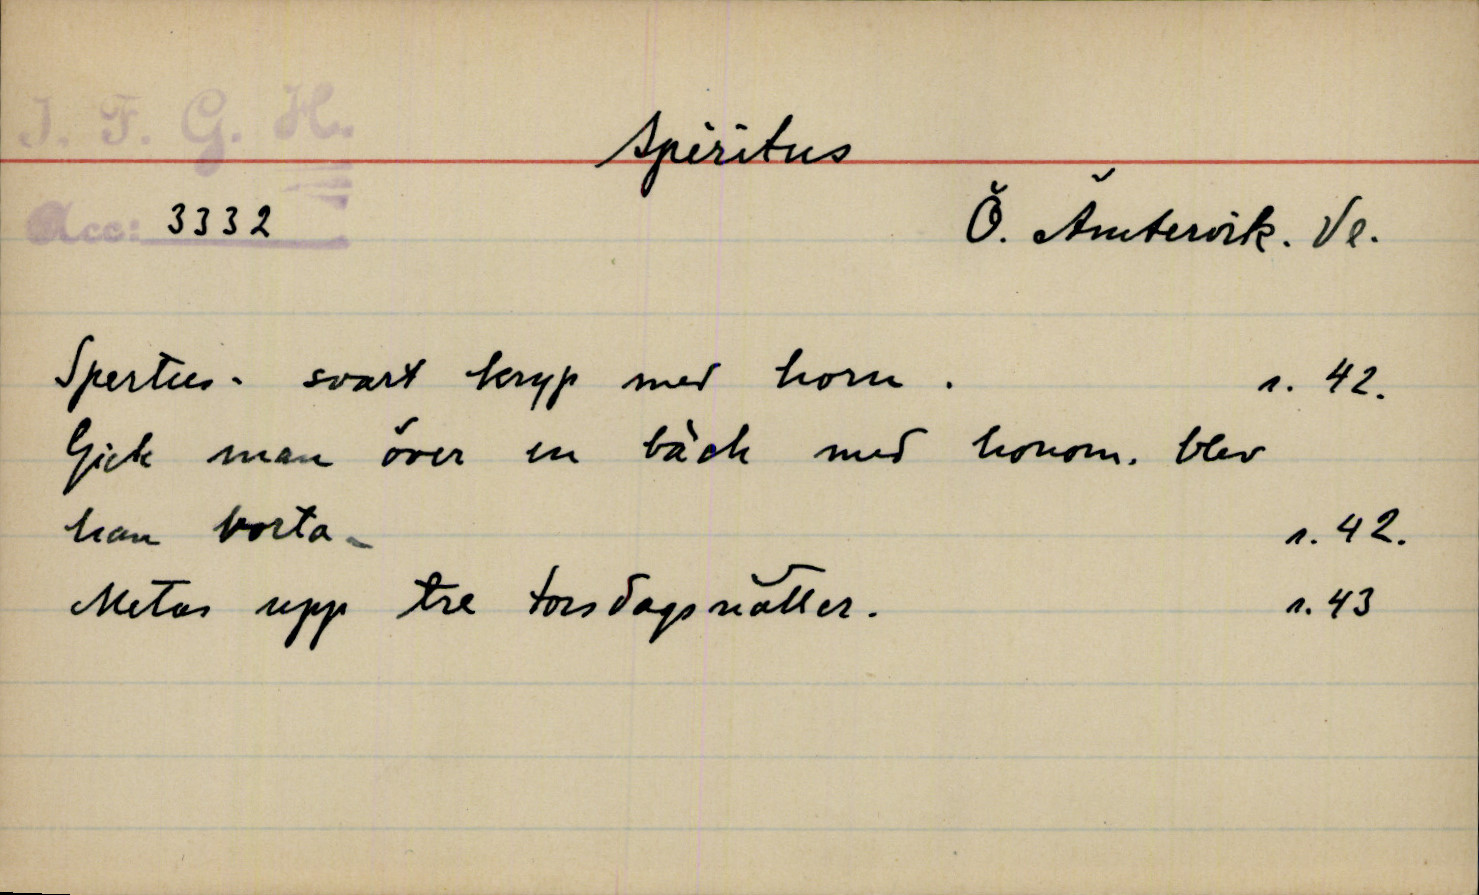 I. F. G. H.
Spiritus
Acc: 3332
Ö. Ämtervik. Vl.
Spertus - svart kryp med horn. s. 42.
Gick man över en bäck med honom. blev
han borta - s. 42.
Metas upp tre torsdagsnätter. s. 43